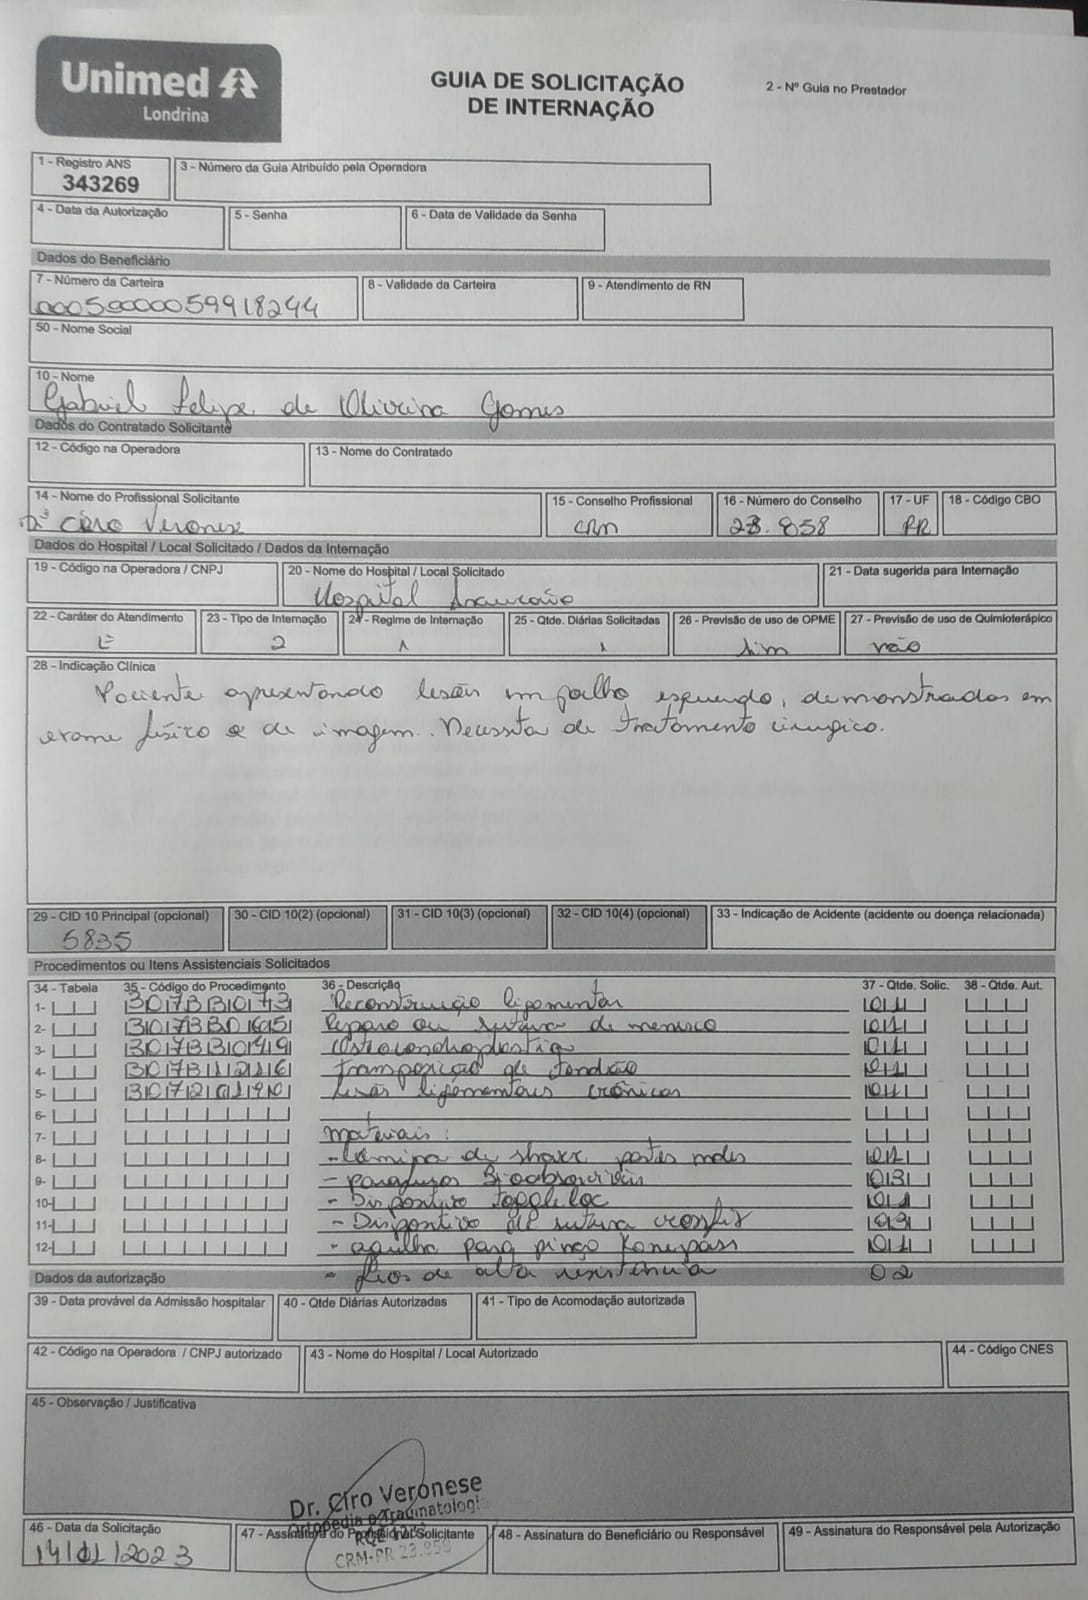 Unimed
Londrina
GUIA DE SOLICITAÇÃO
DE INTERNAÇÃO
2 - Nº Guia no Prestador
1 - Registro ANS
343269
3 - Número da Guia Atribuído pela Operadora
4 - Data da Autorização
5 - Senha
6 - Data de Validade da Senha
Dados do Beneficiário
7 - Número da Carteira
00050000059918244
8 - Validade da Carteira
9 - Atendimento de RN
50 - Nome Social
10 - Nome
Gabriel Felipe de Oliveira Gomes
Dados do Contratado Solicitante
12 - Código na Operadora
13 - Nome do Contratado
14 - Nome do Profissional Solicitante
Dr Ciro Veronese
15 - Conselho Profissional
CRM
16 - Número do Conselho
23.858
17 - UF
PR
18 - Código CBO
Dados do Hospital / Local Solicitado / Dados da Internação
19 - Código na Operadora / CNPJ
20 - Nome do Hospital / Local Solicitado
Hospital
21 - Data sugerida para Internação
22 - Caráter do Atendimento
E
23 - Tipo de Internação
2
24 - Regime de Internação
1
25 - Qtde. Diárias Solicitadas
1
26 - Previsão de uso de OPME
sim
27 - Previsão de uso de Quimioterápico
não
28 - Indicação Clínica
Paciente apresentando lesões em joelho esquerdo, demonstradas em
exame físico e de imagem. Necessita de tratamento cirurgico.
29 - CID 10 Principal (opcional)
S835
30 - CID 10(2) (opcional)
31 - CID 10(3) (opcional)
32 - CID 10(4) (opcional)
33 - Indicação de Acidente (acidente ou doença relacionada)
Procedimentos ou Itens Assistenciais Solicitados
34 - Tabela 35 - Código do Procedimento 36 - Descrição 37 - Qtde. Solic. 38 - Qtde. Aut.
1- Reconstrução ligamentar 01
2- Reparo ou sutura de menisco 01
3- Osteocondroplastia 01
4- Transposição de tendão 01
5- Lesões ligamentares crônicas 01
6-
7- Materiais:
8- - Lamina de shaver partes moles 01
9- - parafusos Bioabsorvíveis 03
10- - Dispositivo toggleloc 01
11- - Dispositivo de sutura 03
12- - agulha para pinça 01
- fios de alta resistência 02
Dados da autorização
39 - Data provável da Admissão hospitalar
40 - Qtde Diárias Autorizadas
41 - Tipo de Acomodação autorizada
42 - Código na Operadora / CNPJ autorizado
43 - Nome do Hospital / Local Autorizado
44 - Código CNES
45 - Observação / Justificativa
Dr. Ciro Veronese
Ortopedia e Traumatologia
CRM-PR 23.858
46 - Data da Solicitação
47 - Assinatura do Profissional Solicitante
48 - Assinatura do Beneficiário ou Responsável
49 - Assinatura do Responsável pela Autorização